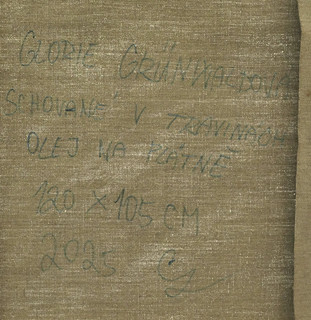 GLORIE GRÜNWALDOVA
SCHOVANÉ V TRAVINÁCH
OLEJ NA PLÁTNĚ
120 X 105 CM
2025